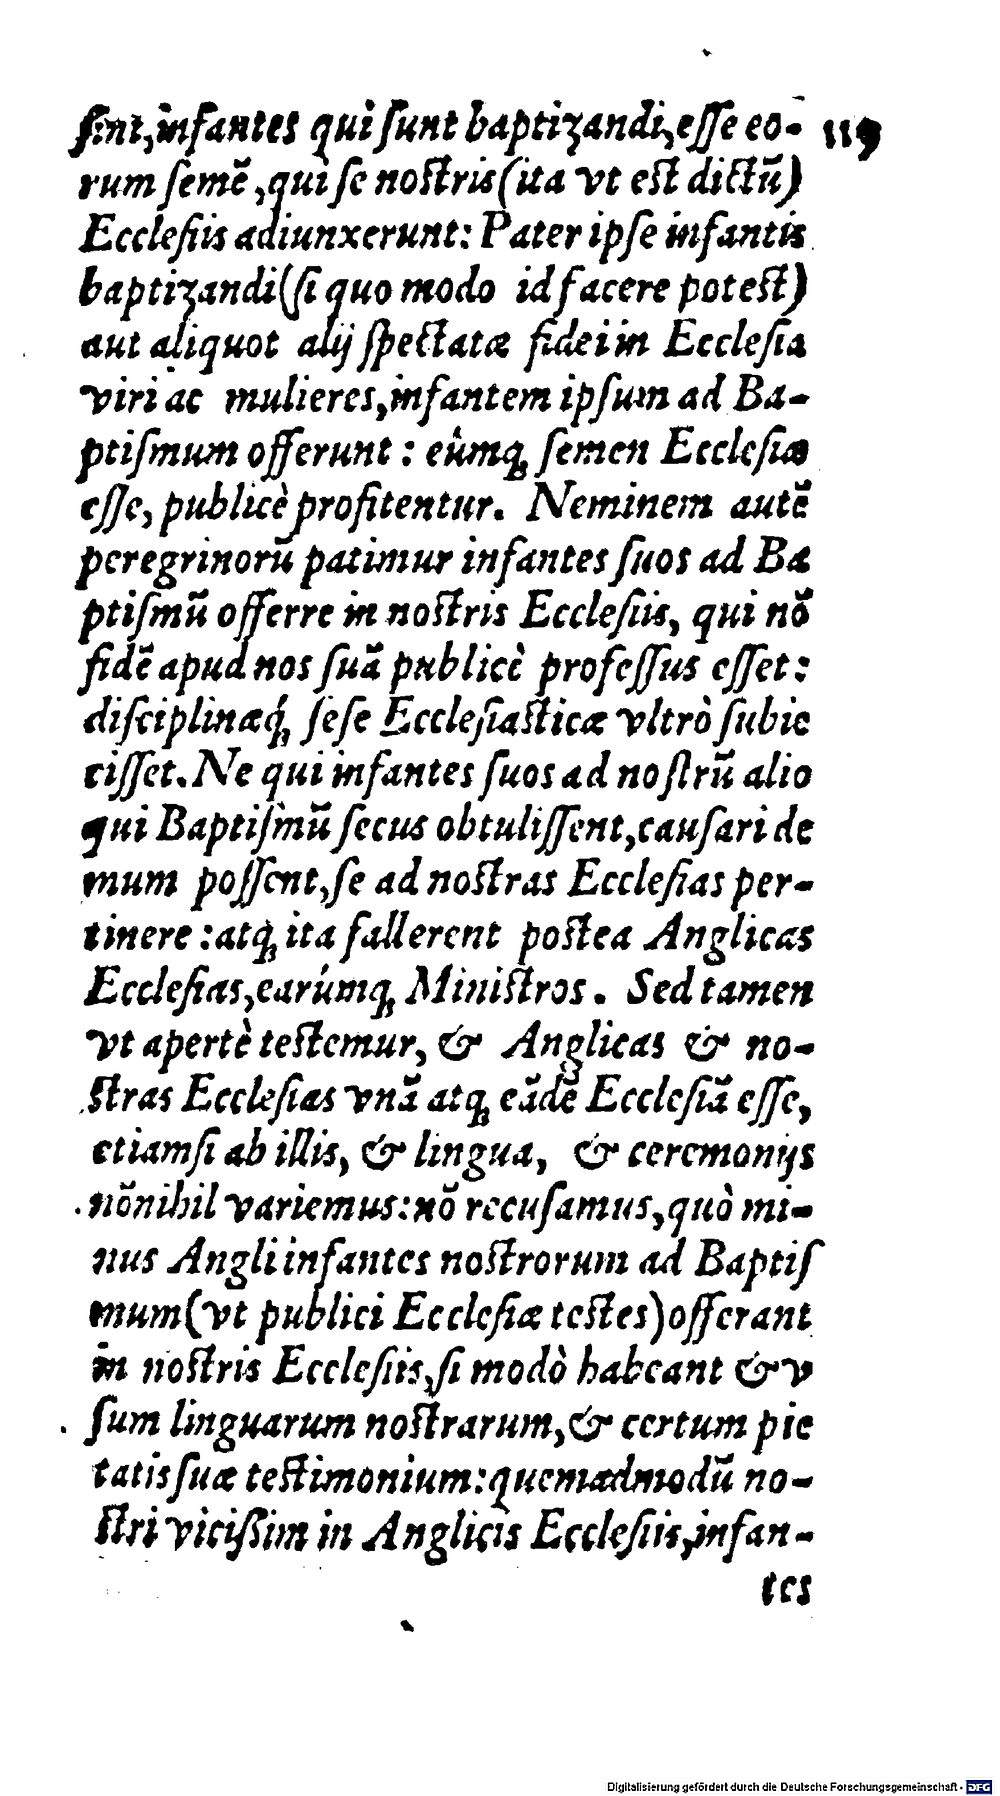 ſint, infantes qui ſunt baptizandi, eſſe eo- 119
rum ſemẽ, qui ſe noſtris (ita vt eſt dictũ)
Eccleſiis adiunxerunt: Pater ipſe infantis
baptizandi (ſi quo modo id facere poteſt)
aut aliquot alij ſpectatæ fidei in Eccleſia
viri ac mulieres, infantem ipſum ad Ba-
ptiſmum offerunt: eúmq; ſemen Eccleſiæ
eſſe, publicè profitentur. Neminem autẽ
peregrinorũ patimur infantes ſuos ad Ba
ptiſmũ offerre in noſtris Eccleſiis, qui nõ
fidẽ apud nos ſuã publicè profeſſus eſſet:
diſciplinæq́; ſeſe Eccleſiaſticæ vltrò ſubie
ciſſet. Ne qui infantes ſuos ad noſtrũ alio
qui Baptiſmũ ſecus obtuliſſent, cauſari de
mum poſſent, ſe ad noſtras Eccleſias per-
tinere: atq; ita fallerent poſtea Anglicas
Eccleſias, earúmq; Miniſtros. Sed tamen
vt apertè teſtemur, & Anglicas & no-
ſtras Eccleſias vnã atq; eãdẽ Eccleſiã eſſe,
etiamſi ab illis, & lingua, & ceremonijs
nõnihil variemus: nõ recuſamus, quò mi-
nus Angli infantes noſtrorum ad Baptiſ
mum (vt publici Eccleſiæ teſtes) offerant
in noſtris Eccleſiis, ſi modò habeant & v
ſum linguarum noſtrarum, & certum pie
tatis ſuæ teſtimonium: quemadmodũ no-
ſtri viciſſim in Anglicis Eccleſiis, infan-
tes
Digitalisierung gefördert durch die Deutsche Forschungsgemeinschaft - DFG